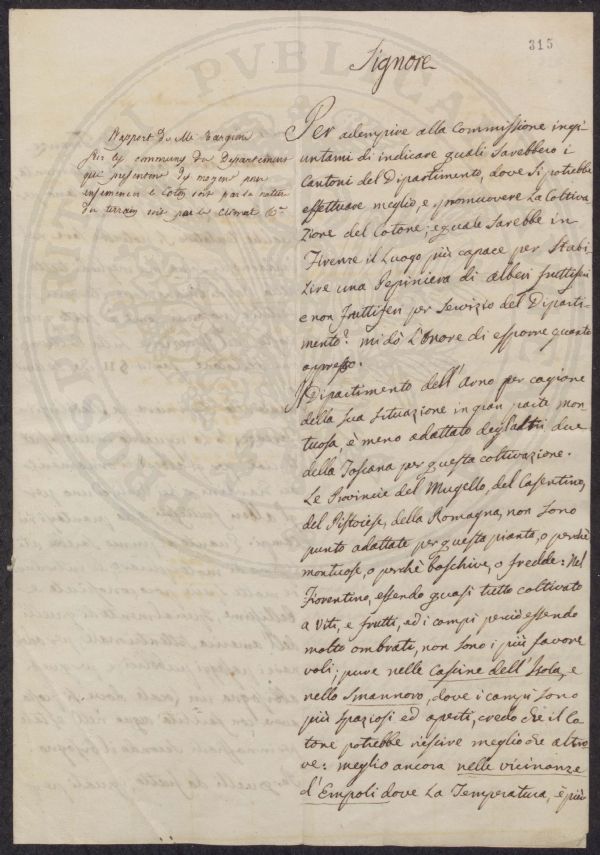 315
Signore
Rapport de Mr. Targioni
sur les communes du Departement
que presentent des moyens pour
ensemencer le Coton soit par la nature
du terrain soit par le climat &c.
Per adempire alla Commissione ingi-
untami di indicare quali sarebbero i
Cantoni del Dipartimento, dove si potrebbe
effettuare meglio, e promuovere la Coltiva
zione del Cotone; e quale sarebbe in
Firenze il Luogo più capace per stabi-
lire una Pepiniera di alberi fruttiferi
e non fruttiferi per servizio del Diparti-
mento? mi dò L'onore di esporre quanto
appresso.
Il Dipartimento dell'Arno per cagione
della sua situazione in gran parte mon
tuosa, è meno adattato degl'altri due
della Toscana per questa coltivazione.
Le Provincie del Mugello, del Casentino,
del Pistoiese, della Romagna, non sono
punto adattate per questa pianta, o perchè
montuose, o perchè boschive, o fredde: Nel
Fiorentino, essendo quasi tutto coltivato
a Viti, e frutti, ed i campi perciò essendo
molto ombrati, non sono i più favore
voli; pure nelle Cascine dell'Isola, e
nello Smannoro, dove i campi sono
più spaziosi ed aperti, credo che il Co
tone potrebbe riescire meglio che altro
ve: meglio ancora nelle vicinanze
d'Empoli dove la Temperatura, è più